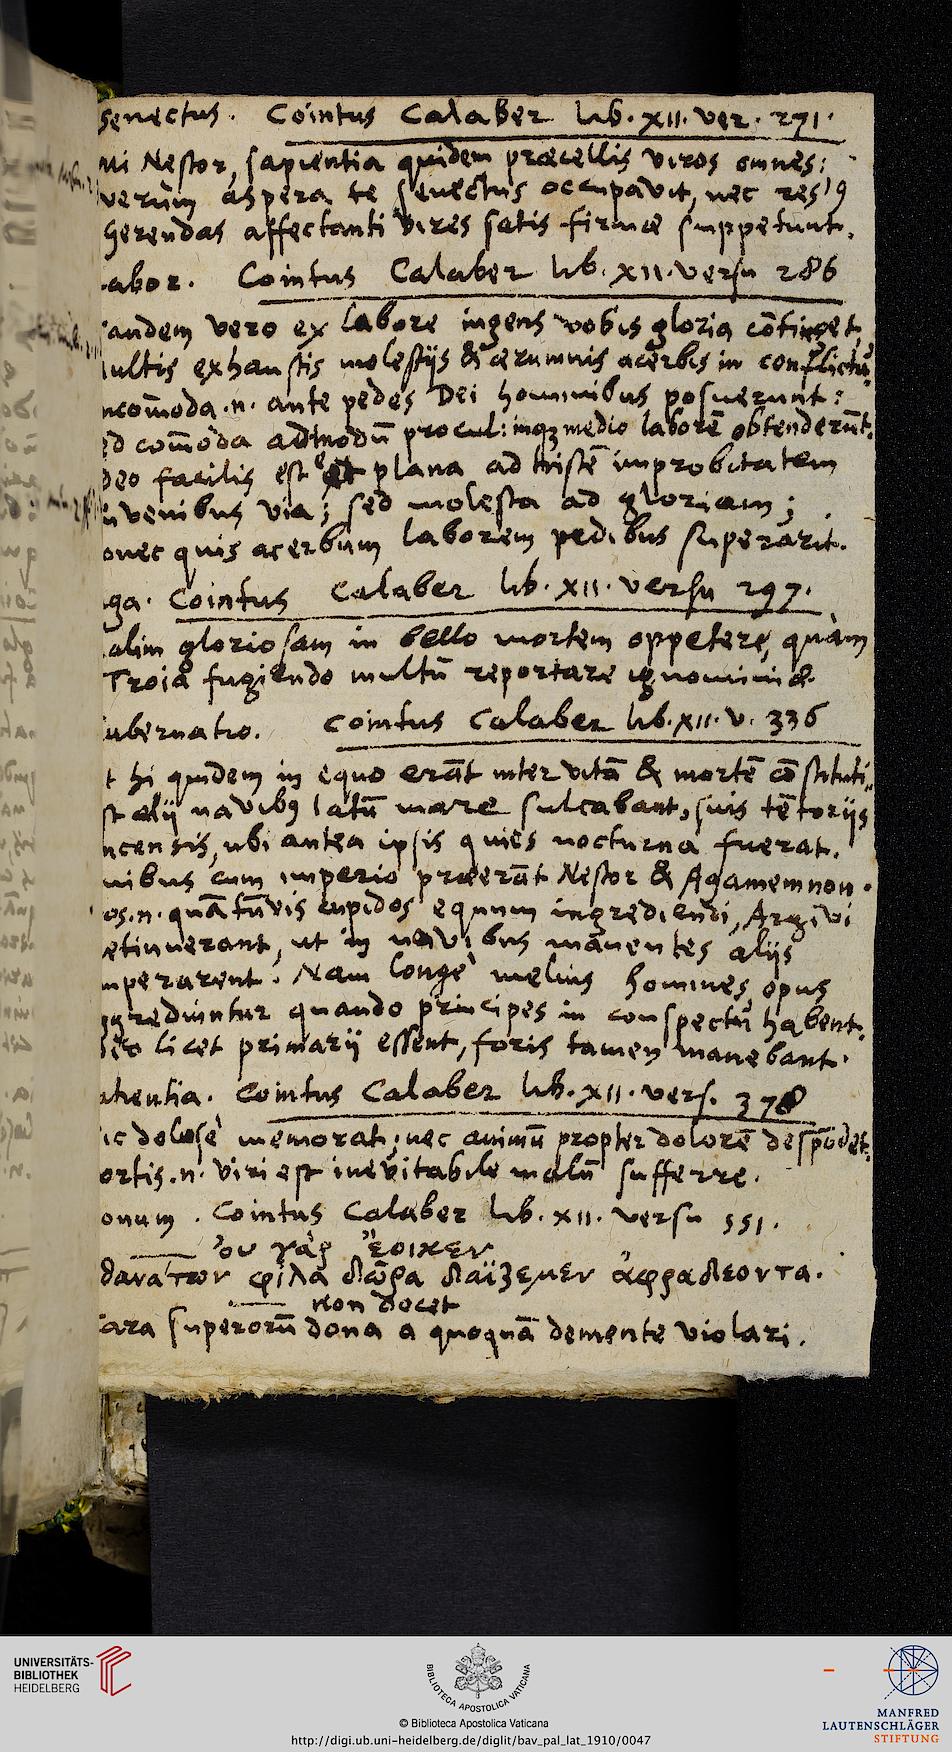 senectus. Cointus Calaber lib. XII. ver. 271.
mi Nestor, sapientia quidem præcellis viros omnes:
verùm aspera te senectus occupavit, nec res
gerendas affectanti vires satis firmæ suppetunt.
abor. Cointus Calaber lib. XII. versu 286
andem vero ex labore ingens vobis gloria cōtinget,
ultis exhaustis molestijs & ærumnis acerbis in conflictu.
ncom̄oda .n. ante pedes Dei hominibus posuerunt:
ed com̄oda admodū procul: inqz medio laborē obtenderūt.
deo facilis est et plana ad tristē improbitatem
uvenibus via; sed molesta ad gloriam;
onec quis acerbum laborem pedibus superarit.
ga. Cointus Calaber lib. XII. versu 297.
alim gloriosam in bello mortem oppetere, quàm
Troia fugiendo multū reportare ignominiæ.
ubernatio. Cointus Calaber lib. XII. v. 336
t hi quidem in equo erāt inter vitā & mortē cōstituti.
st alij navibꝯ latū mare sulcabant, suis tētorijs
ncensis, ubi antea ipsis quies nocturna fuerat.
uibus cum imperio præerāt Nestor & Agamemnon.
os .n. quātūvis cupidos equum ingrediendi, Argivi
etinuerant, ut in navibus manentes alijs
mperarent. Nam longè melius homines opus
ggrediuntur quando principes in conspectu habent.
deo licet primarij essent, foris tamen manebant.
atientia. Cointus Calaber lib. XII. vers. 378
ic dolosè memorat; nec animū propter dolorē despōdet.
ortis .n. viri est inevitabile malū sufferre.
onum. Cointus Calaber lib. XII. versu 551.
οὐ γὰρ ἔοικεν
θανάτων φίλα δῶρα δαϊζεμεν ἀφραδεοντα.
non decet
ara superorū dona a quoquā demente violari.
UNIVERSITÄTS-
BIBLIOTHEK
HEIDELBERG
BIBLIOTECA APOSTOLICA VATICANA
© Biblioteca Apostolica Vaticana
http://digi.ub.uni-heidelberg.de/diglit/bav_pal_lat_1910/0047
MANFRED
LAUTENSCHLÄGER
STIFTUNG